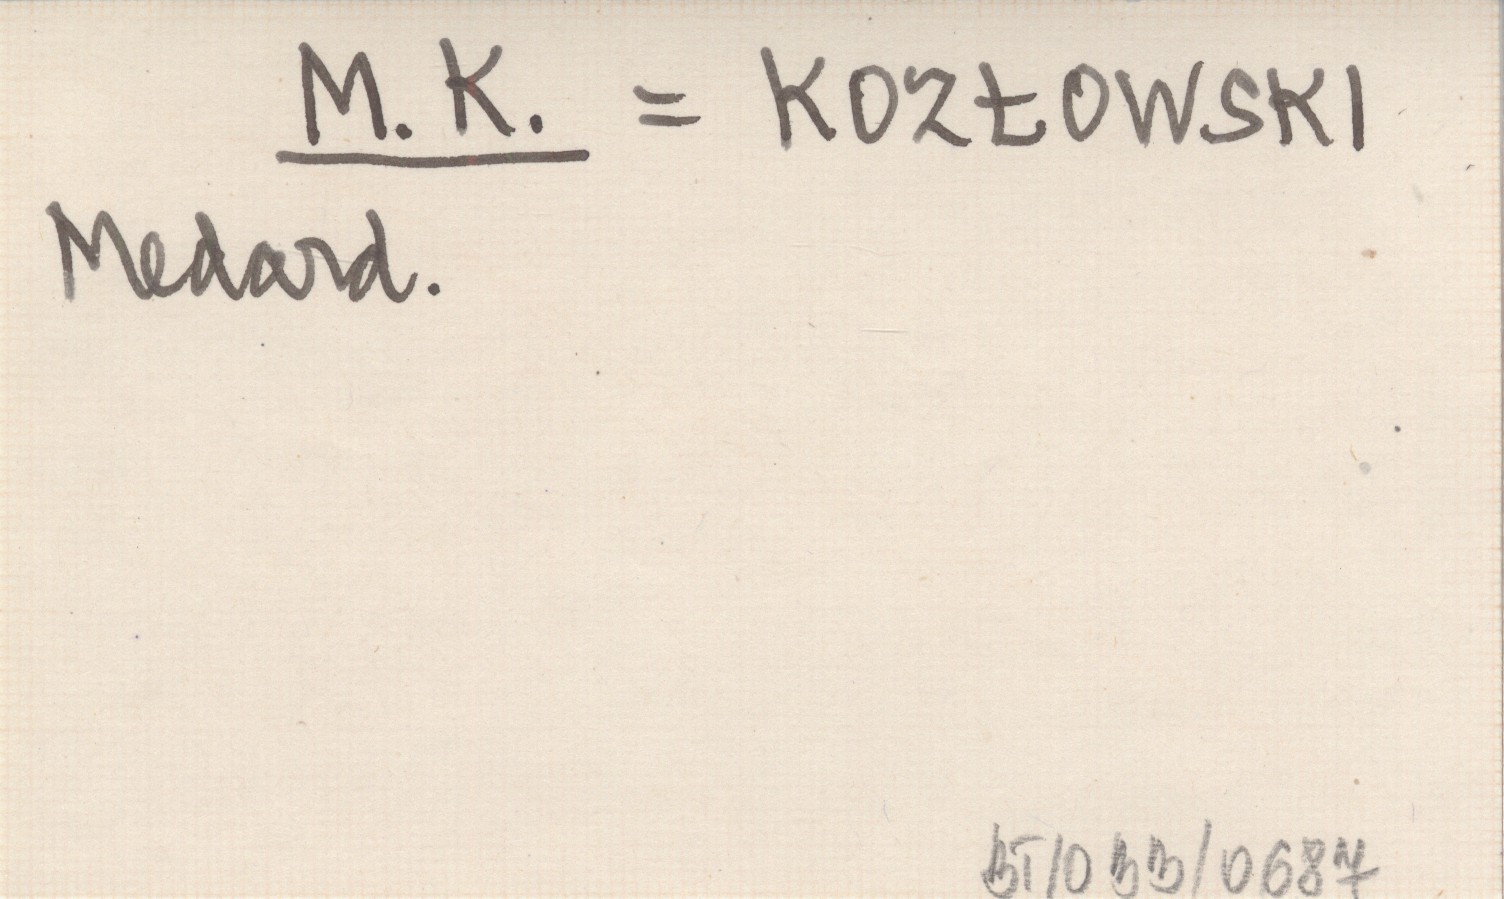 M. K. = KOZŁOWSKI
Medard.
BT/OBB/0687